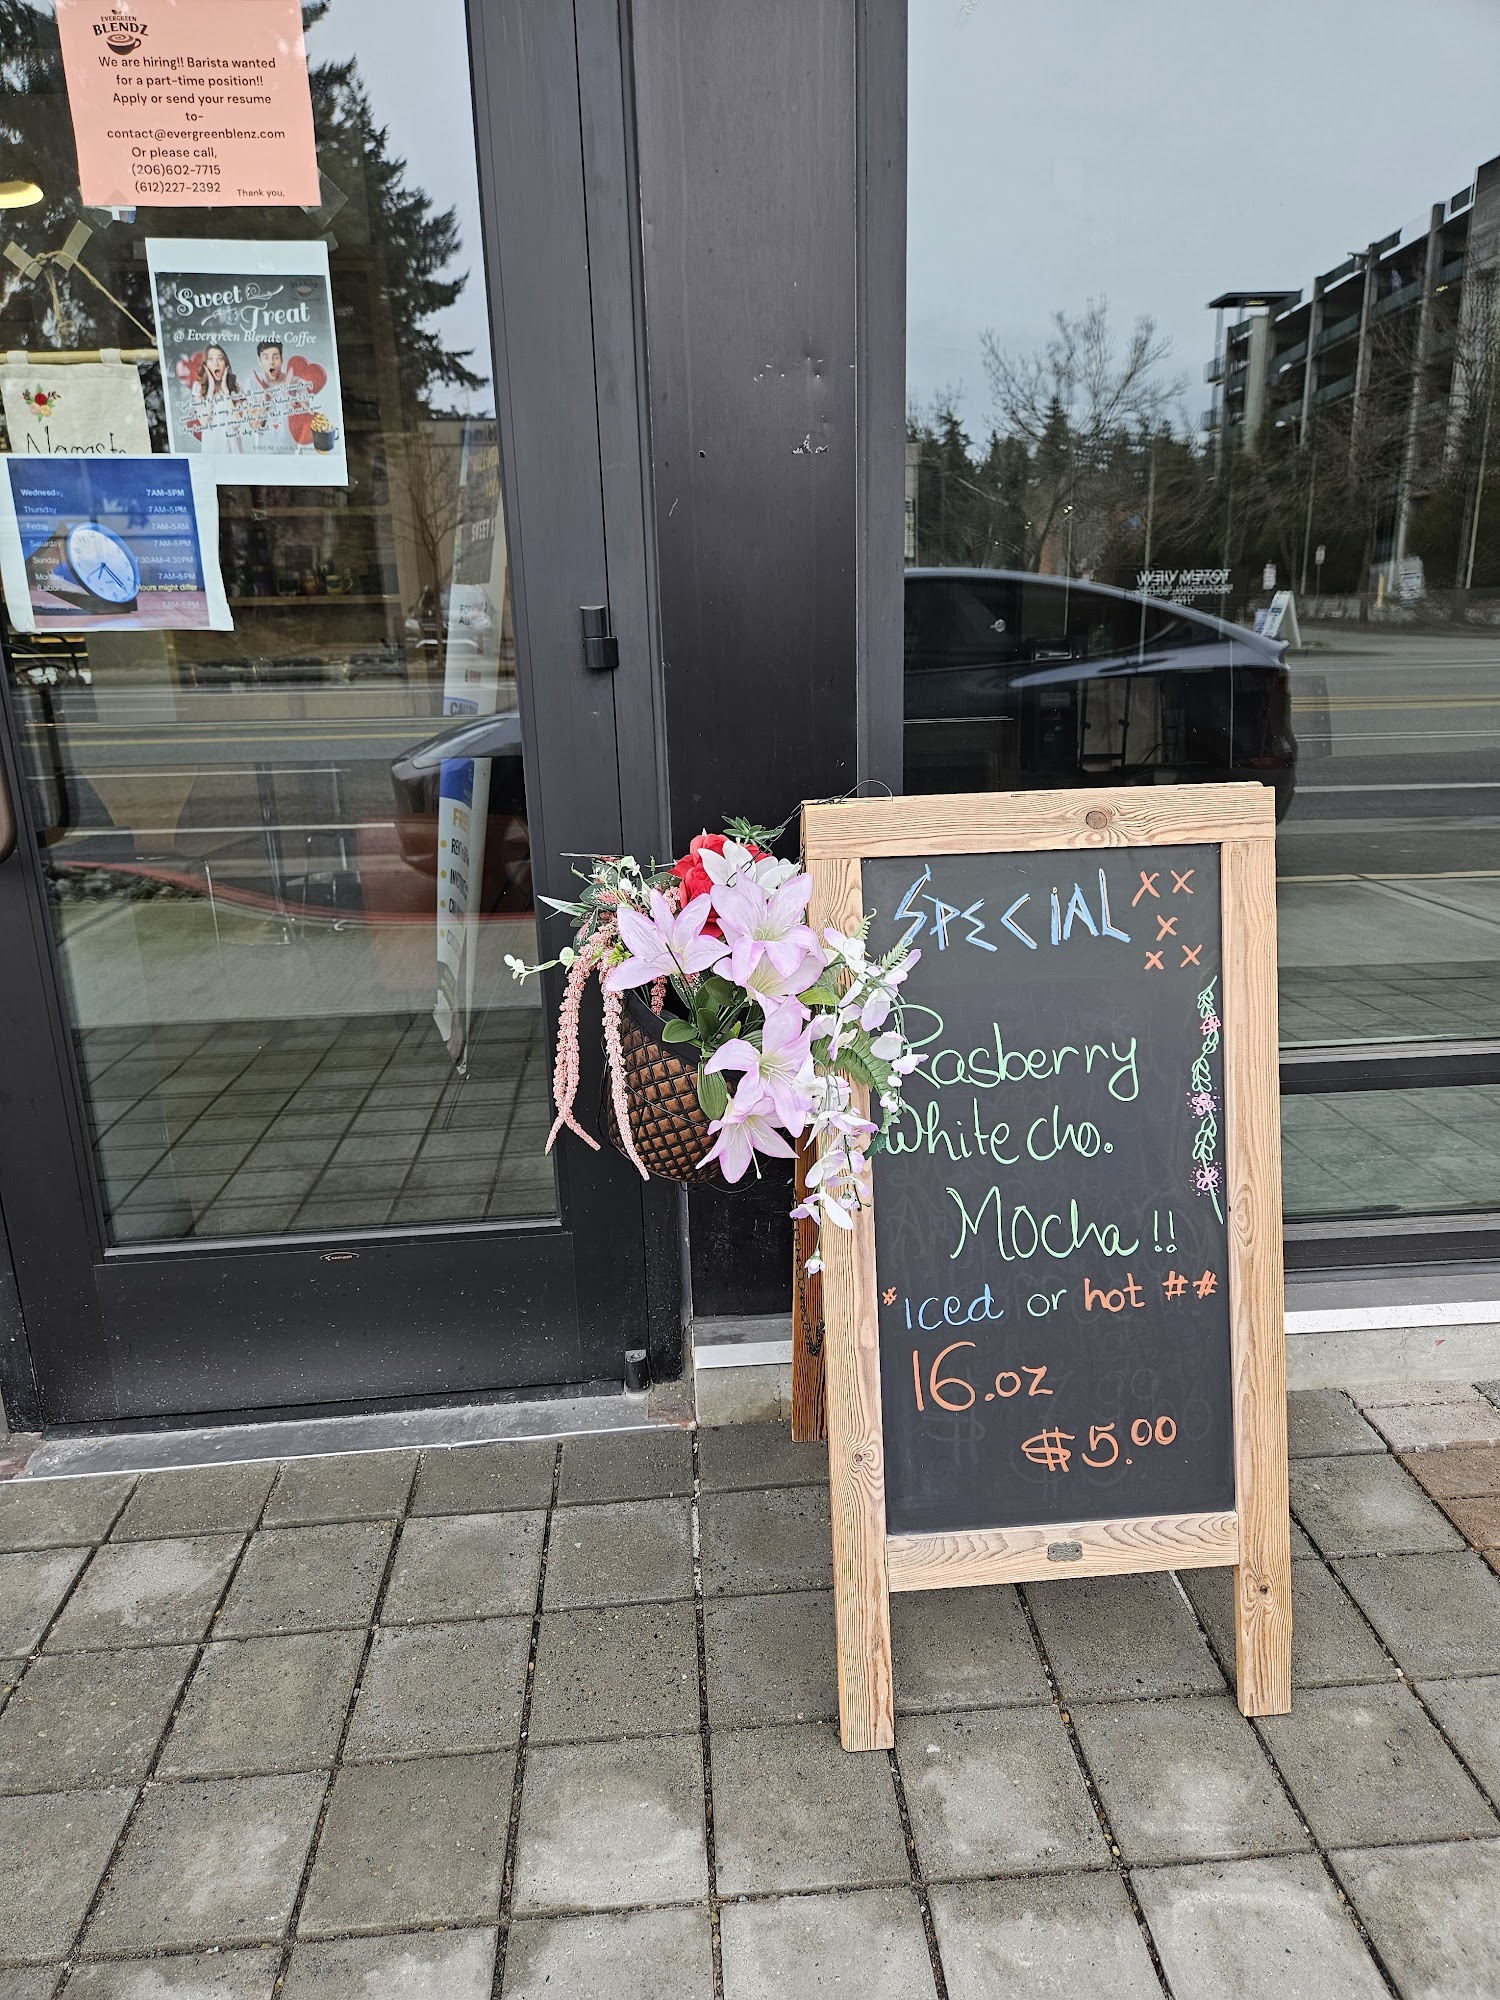 EVERGREEN
BLENDZ
We are hiring!! Barista wanted
for a part-time position!!
Apply or send your resume
to-
contact@evergreenblenz.com
Or please call,
(206)602-7715
(612)227-2392 Thank you,
Sweet
Treat
@ Evergreen Blendz Coffee
Namast
Wednesday 7 AM–5 PM
Thursday 7 AM–5 PM
Friday 7 AM–5 AM
Saturday 7 AM–5 PM
Sunday 7:30 AM–4:30 PM
7 AM–5 PM
Hours might differ
TOTEM VIEW
SPECIAL xx
x
xx
Rasberry
White cho.
Mocha!!
*iced or hot ##
16.oz
$5.00